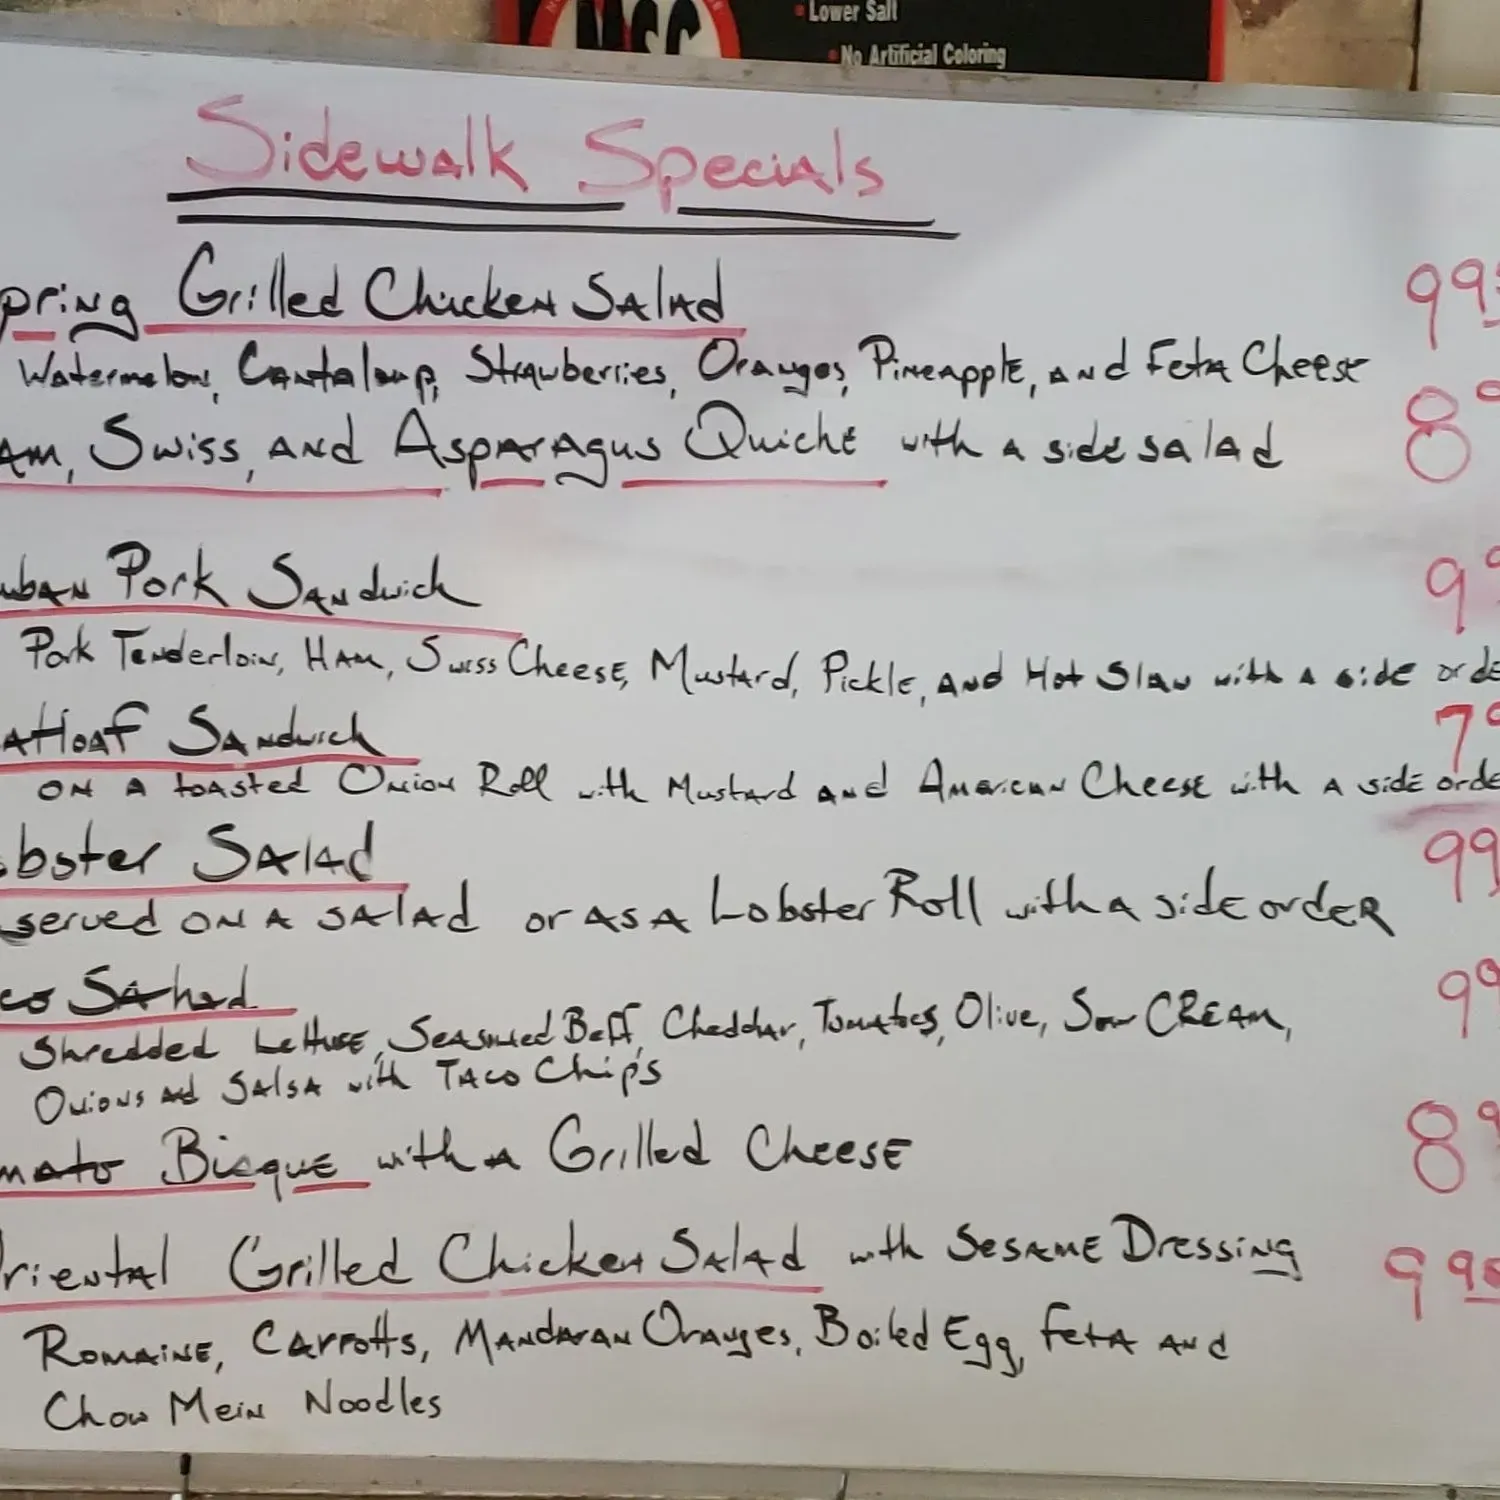 MSC
Lower Salt
No Artificial Coloring
Sidewalk Specials
pring Grilled Chicken Salad 99
Watermelon, Cantaloup, Strawberries, Oranges, Pineapple, and Feta Cheese
am, Swiss, and Asparagus Quiche with a side salad 89
uban Pork Sandwich 99
Pork Tenderloin, Ham, Swiss Cheese, Mustard, Pickle, and Hot Slaw with a side orde
atloaf Sandwich 79
on a toasted Onion Roll with Mustard and American Cheese with a side orde
obster Salad 99
served on a salad or as a Lobster Roll with a side order
co Salad 99
Shredded Lettuse, Seasoned Beff, Cheddar, Tomatoes, Olive, Sour Cream,
Onions and Salsa with Taco Chips
mato Bisque with a Grilled Cheese 89
Oriental Grilled Chicken Salad with Sesame Dressing 995
Romaine, Carrotts, Mandaran Oranges, Boiled Egg, Feta and
Chow Mein Noodles